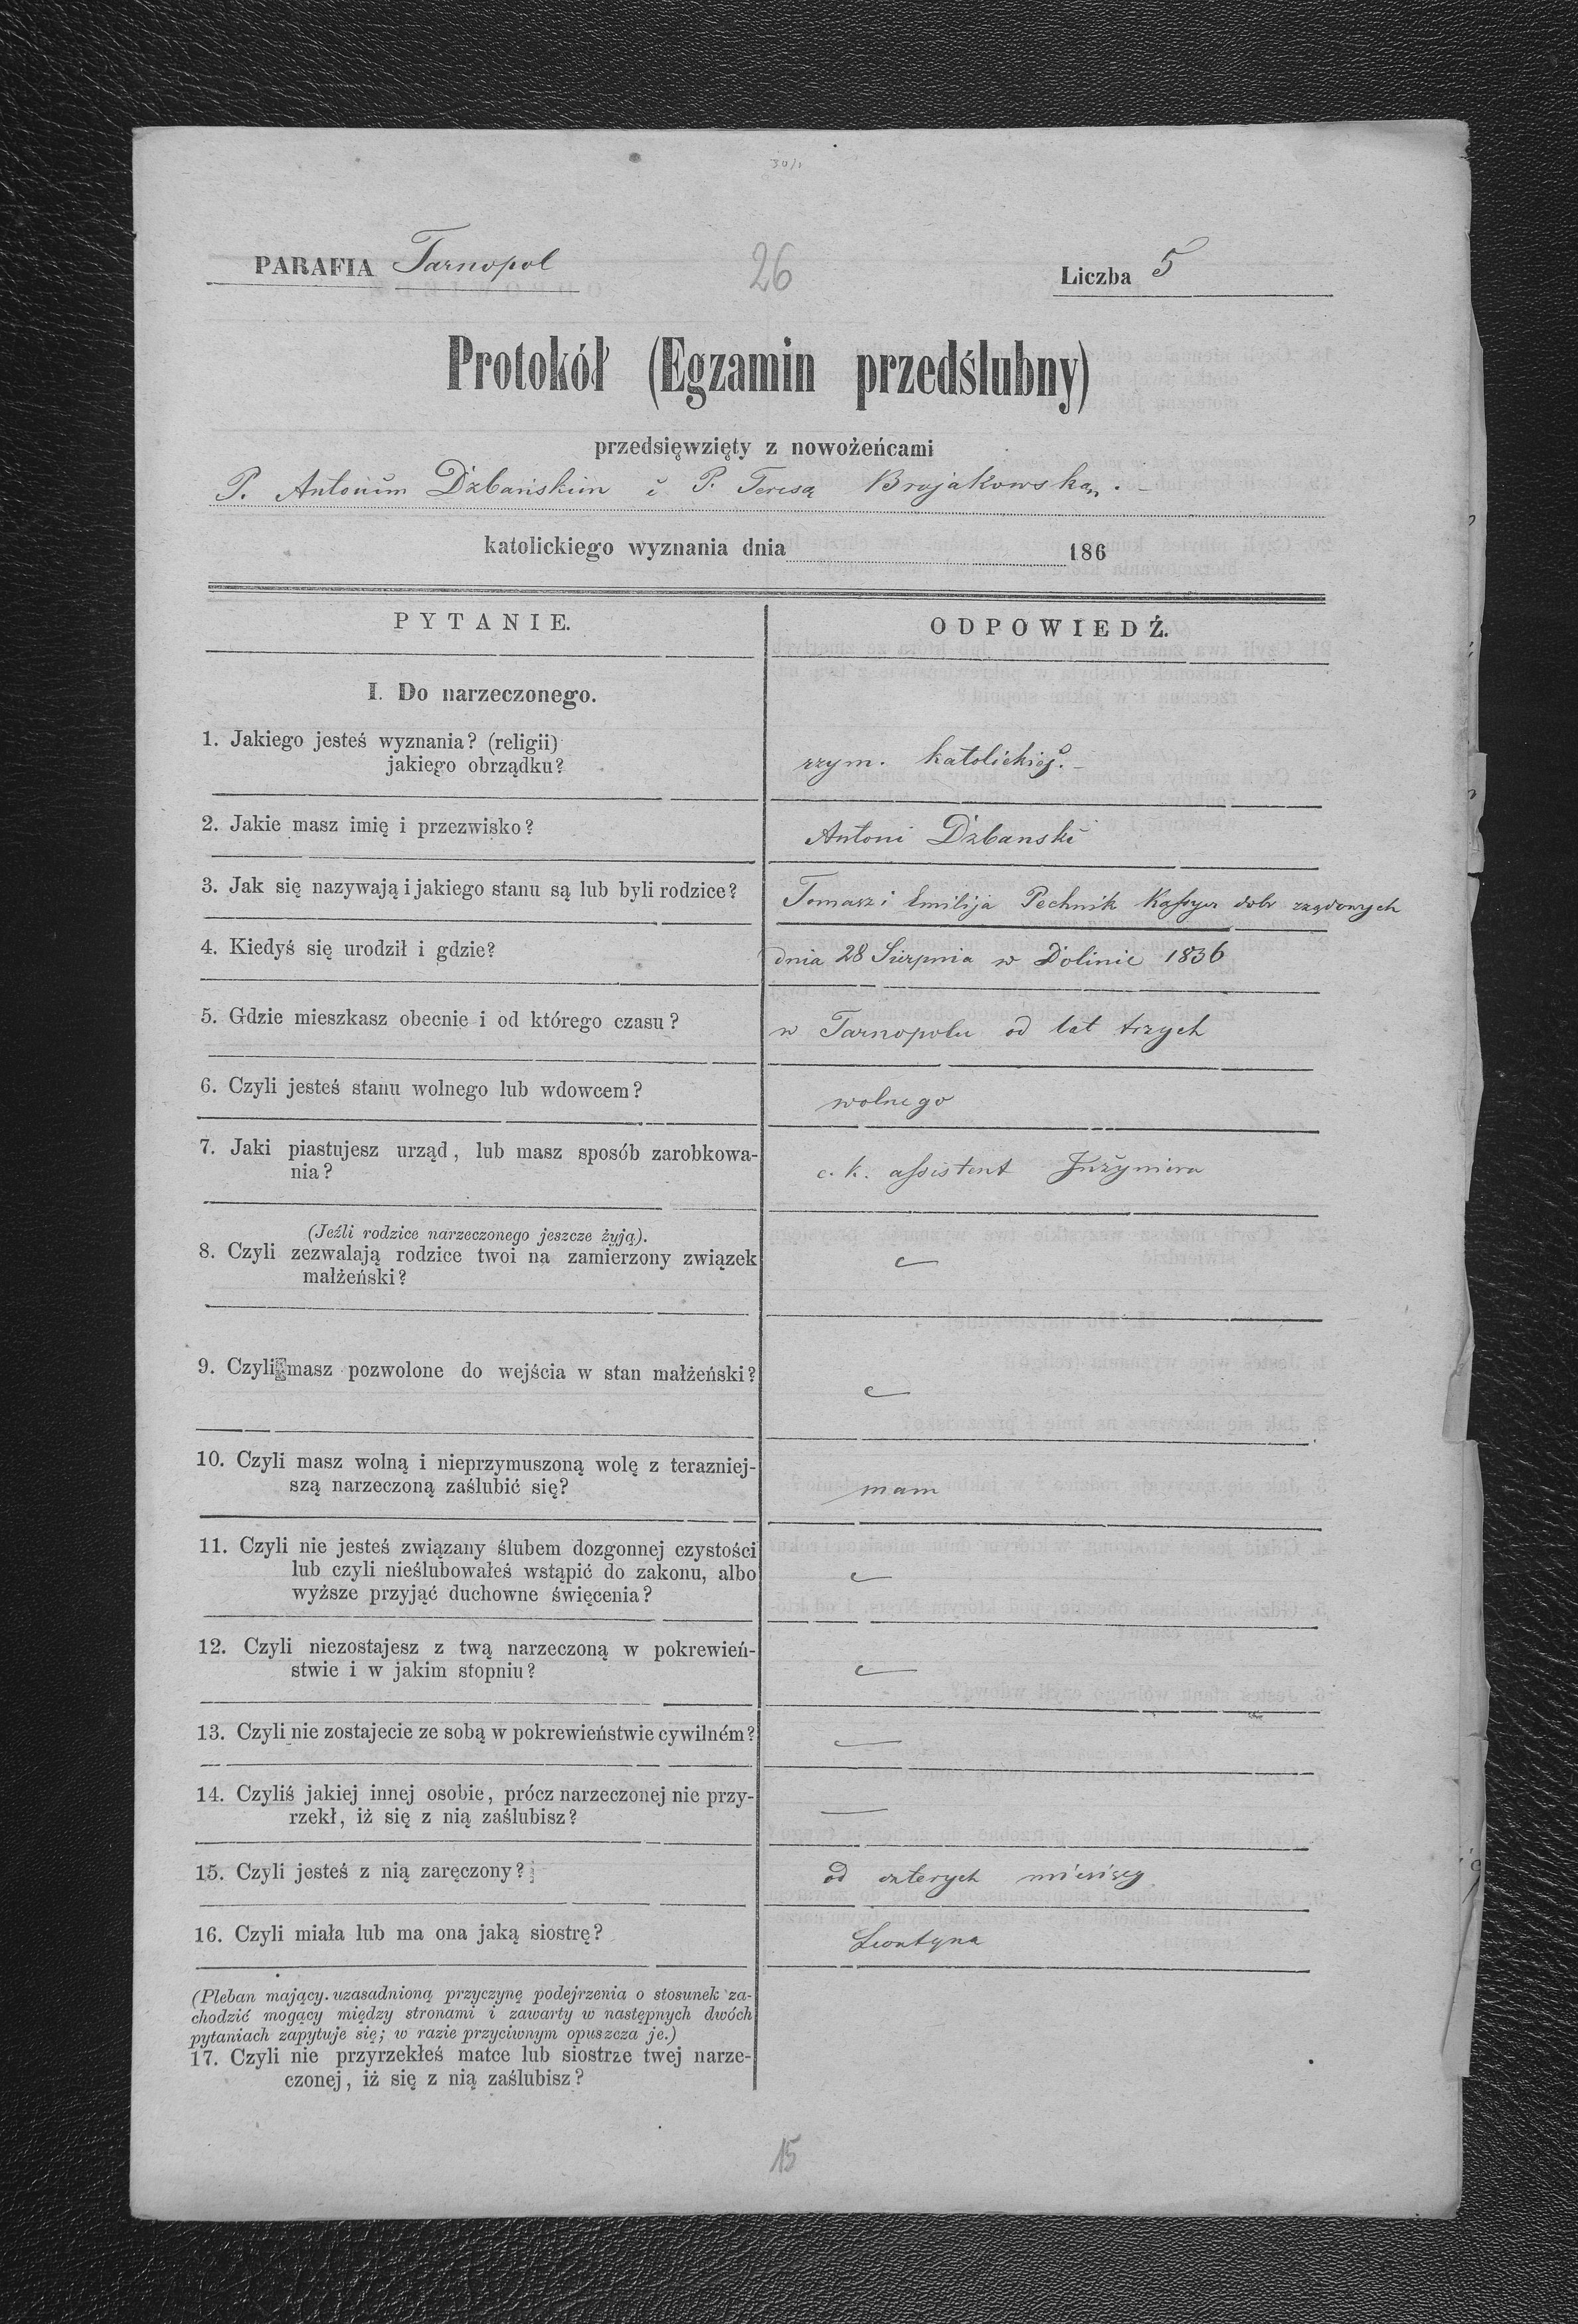 PARAFIA Tarnopol
26
Liczba 5
Protokół (Egzamin przedślubny)
przedsięwzięty z nowożeńcami
P. Antonim Dzbańskim i P. Teresą Brajakowską.
katolickiego wyznania dnia 186
PYTANIE.
ODPOWIEDŹ.
I. Do narzeczonego.
1. Jakiego jesteś wyznania? (religii)
jakiego obrządku?
rzym. katolickiego.
2. Jakie masz imię i przezwisko?
Antoni Dzbanski
3. Jak się nazywają i jakiego stanu są lub byli rodzice?
Tomasz i Emilija Pechnik Kassyer dobr rządowych
4. Kiedyś się urodził i gdzie?
dnia 28 Sierpnia w Dolinie 1836
5. Gdzie mieszkasz obecnie i od którego czasu?
w Tarnopolu od lat trzych
6. Czyli jesteś stanu wolnego lub wdowcem?
wolnego
7. Jaki piastujesz urząd, lub masz sposób zarobkowa-
nia?
c. k. assistent Inżyniera
(Jeźli rodzice narzeczonego jeszcze żyją).
8. Czyli zezwalają rodzice twoi na zamierzony związek
małżeński?
9. Czyli masz pozwolone do wejścia w stan małżeński?
10. Czyli masz wolną i nieprzymuszoną wolę z terazniej-
szą narzeczoną zaślubić się?
mam
11. Czyli nie jesteś związany ślubem dozgonnej czystości
lub czyli nieślubowałeś wstąpić do zakonu, albo
wyższe przyjąć duchowne święcenia?
12. Czyli niezostajesz z twą narzeczoną w pokrewień-
stwie i w jakim stopniu?
13. Czyli nie zostajecie ze sobą w pokrewieństwie cywilném?
14. Czyliś jakiej innej osobie, prócz narzeczonej nie przy-
rzekł, iż się z nią zaślubisz?
15. Czyli jesteś z nią zaręczony?
od czterych miesięcy
16. Czyli miała lub ma ona jaką siostrę?
Leontyna
(Pleban mający uzasadnioną przyczynę podejrzenia o stosunek za-
chodzić mogący między stronami i zawarty w następnych dwóch
pytaniach zapytuje się; w razie przyciwnym opuszcza je.)
17. Czyli nie przyrzekłeś matce lub siostrze twej narze-
czonej, iż się z nią zaślubisz?
15